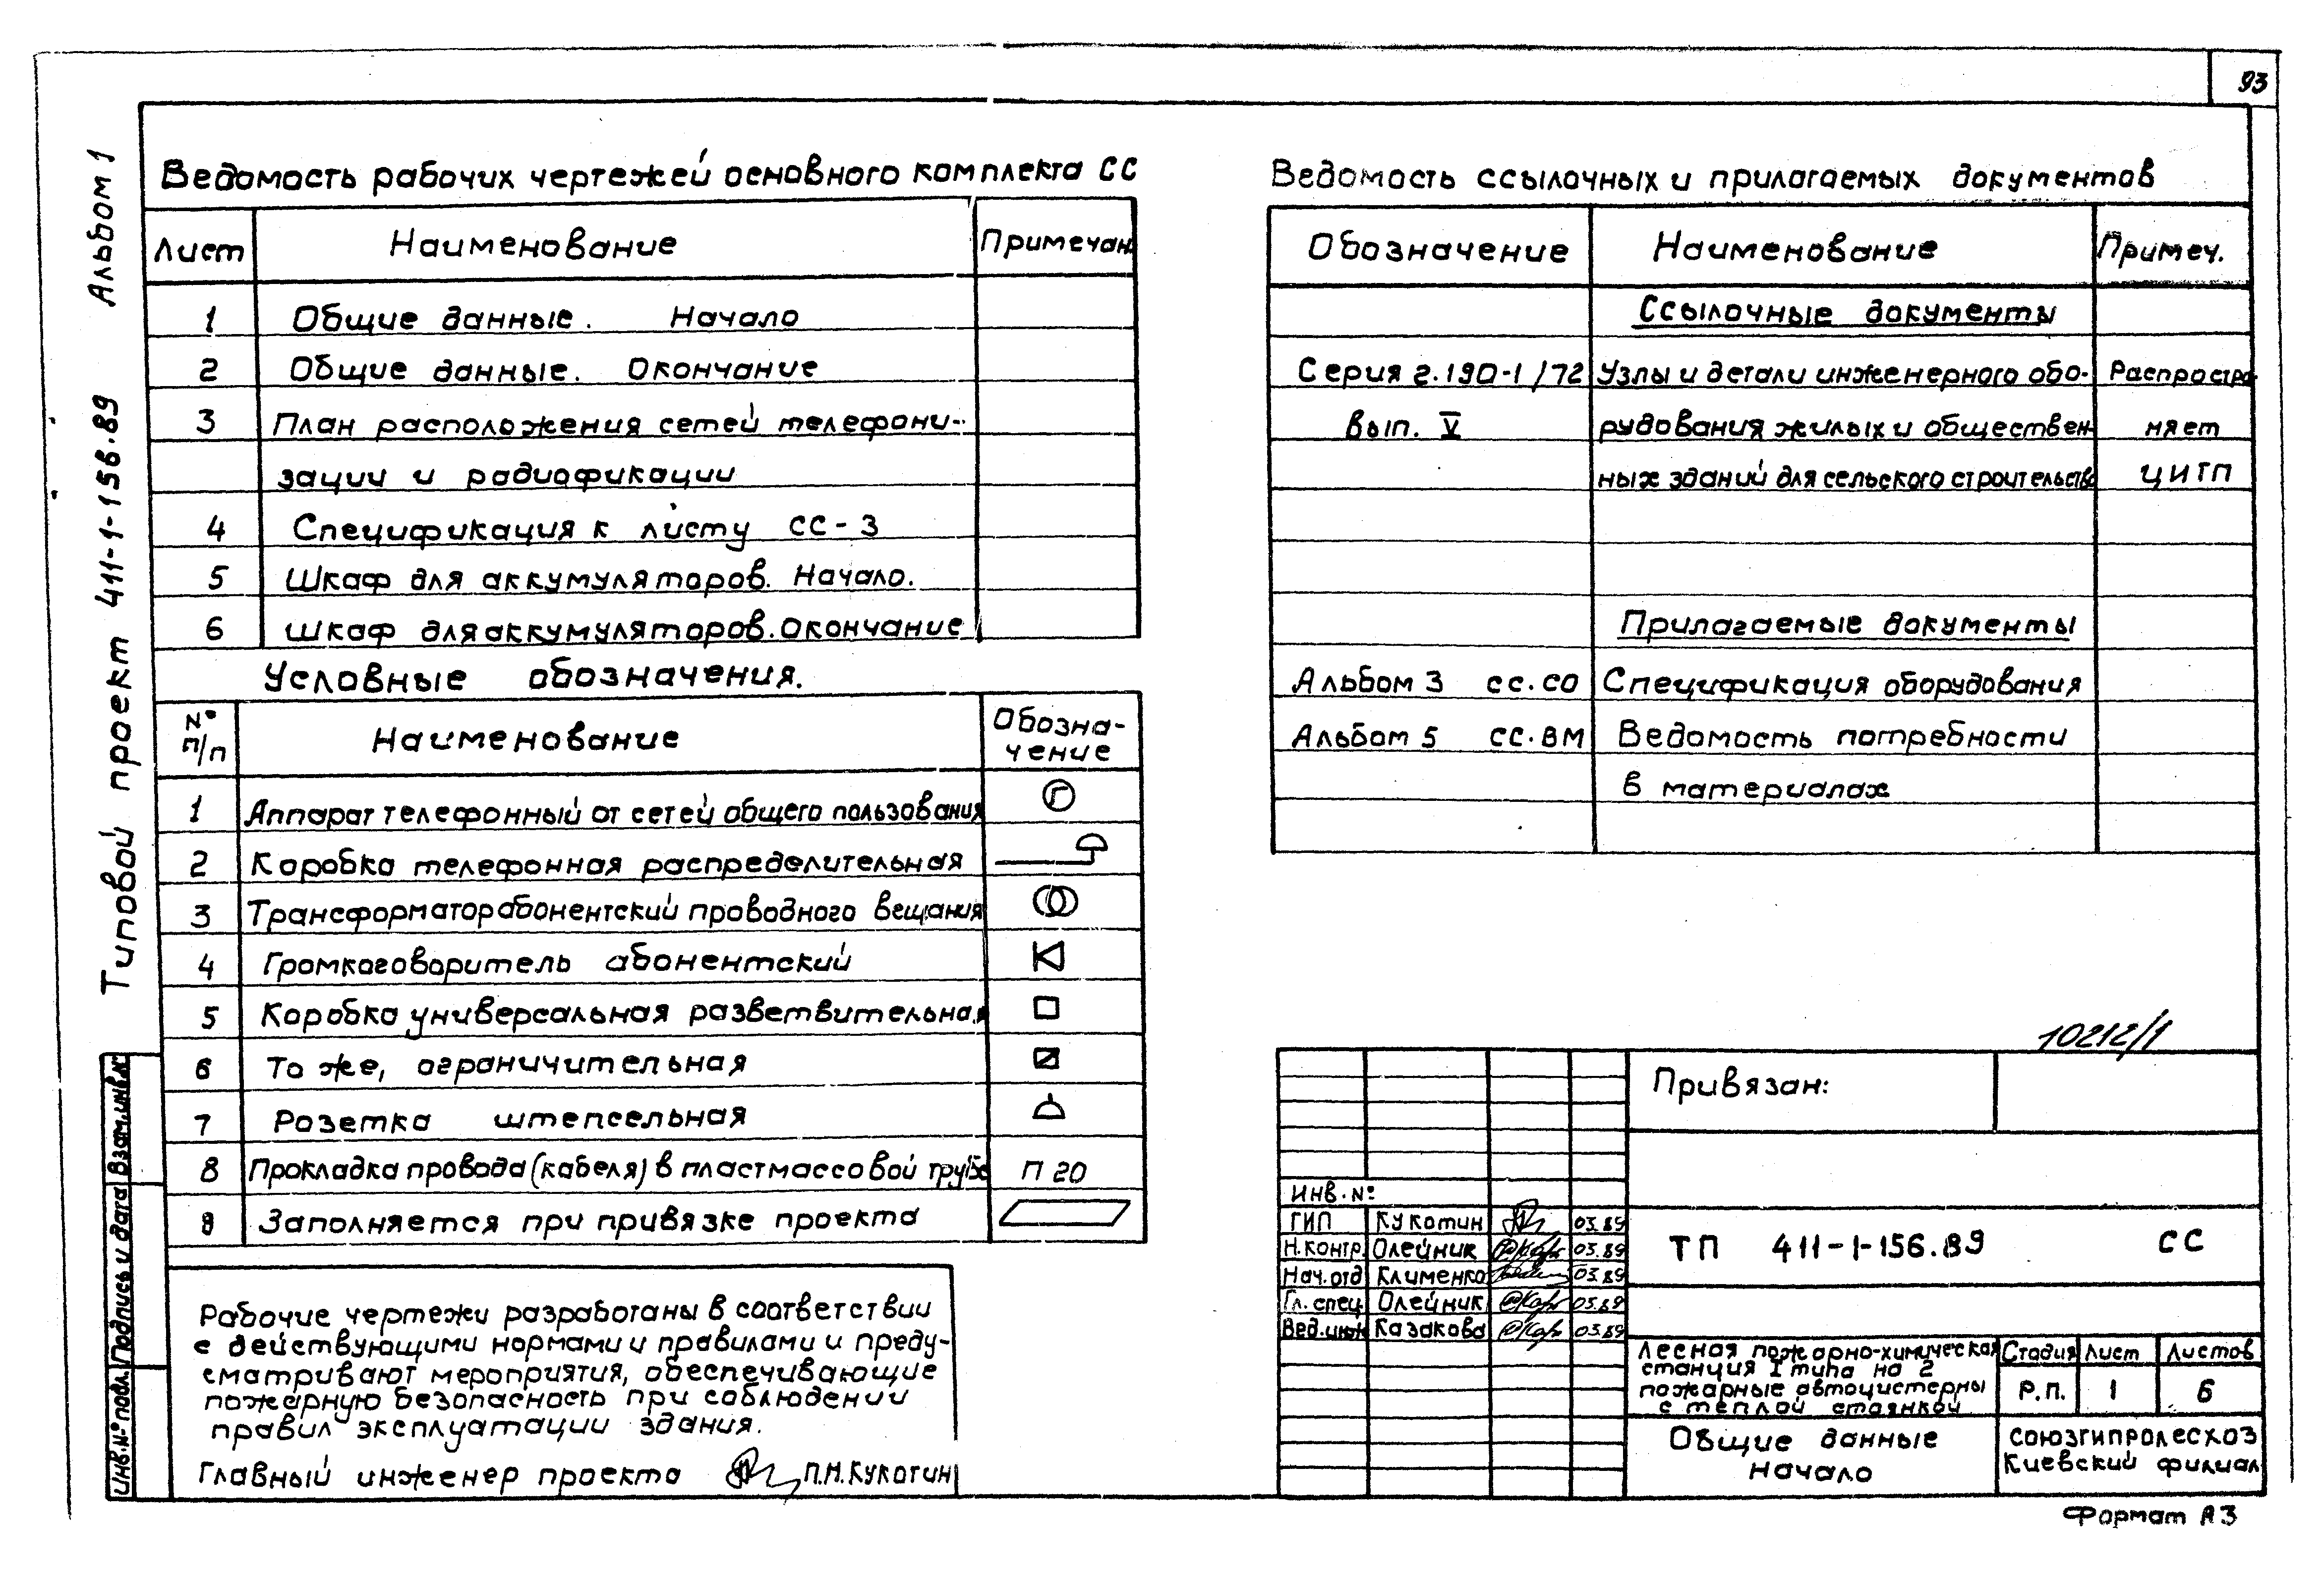 93
Альбом 1
Типовой проект 411-1-156.89
Взам.инв.№
Подпись и дата
Инв.№ подл.
Ведомость рабочих чертежей основного комплекта СС
Лист Наименование Примечан.
1 Общие данные. Начало
2 Общие данные. Окончание
3 План расположения сетей телефони-
зации и радиофикации
4 Спецификация к листу СС-3
5 Шкаф для аккумуляторов. Начало.
6 Шкаф для аккумуляторов. Окончание
Условные обозначения.
№ п/п Наименование Обозна-
чение
1 Аппарат телефонный от сетей общего пользования Г
2 Коробка телефонная распределительная
3 Трансформатор абонентский проводного вещания
4 Громкоговоритель абонентский
5 Коробка универсальная разветвительная
6 То же, ограничительная
7 Розетка штепсельная
8 Прокладка провода (кабеля) в пластмассовой трубе П 20
9 Заполняется при привязке проекта
Рабочие чертежи разработаны в соответствии
с действующими нормами и правилами и преду-
сматривают мероприятия, обеспечивающие
пожарную безопасность при соблюдении
правил эксплуатации здания.
Главный инженер проекта П.Н.Кукотин
Ведомость ссылочных и прилагаемых документов
Обозначение Наименование Примеч.
Ссылочные документы
Серия 2.190-1/72 Узлы и детали инженерного обо- Распростра
вып. V рудования жилых и обществен- няет
ных зданий для сельского строительства ЦИТП
Прилагаемые документы
Альбом 3 СС.СО Спецификация оборудования
Альбом 5 СС.ВМ Ведомость потребности
в материалах
10212/1
Привязан:
Инв.№
ГИП Кукотин 03.89
Н.контр. Олейник 03.89
Нач.отд Клименко 03.89
Гл.спец. Олейник 03.89
Вед.инж Казакова 03.89
ТП 411-1-156.89 СС
Лесная пожарно-химическая
станция I типа на 2
пожарные автоцистерны
с теплой стоянкой
Стадия Лист Листов
Р.П. 1 6
Общие данные
Начало
Союзгипролесхоз
Киевский филиал
Формат А3